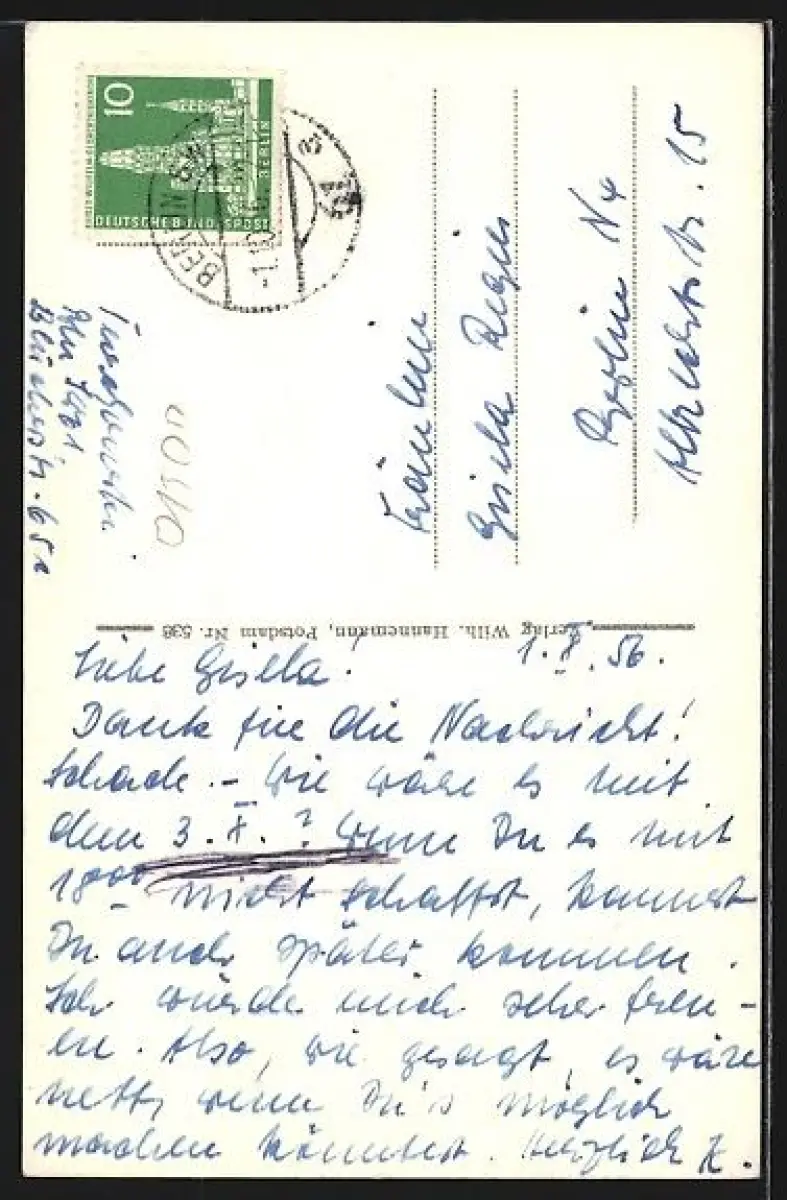 10
KAISER-WILHELM-GEDÄCHTNISKIRCHE
BERLIN
DEUTSCHE BUNDESPOST
BERLIN SW
-1.10.56
Fräulein
Gisela
Berlin N4
Albrechtstr. 15
Bln
Blücherstr. 65a
Verlag Wilh. Hannemann, Potsdam Nr. 538
1.X.56.
Liebe Gisela!
Dank für die Nachricht!
Schade. - Wie wäre es mit
dem 3.X.? Wenn Du es mit
18ººº nicht schaffst, kannst
Du auch später kommen.
Ich würde mich sehr freu-
en. Also, wie gesagt, es wäre
nett, wenn Du's möglich
machen könntest. Herzlich K.